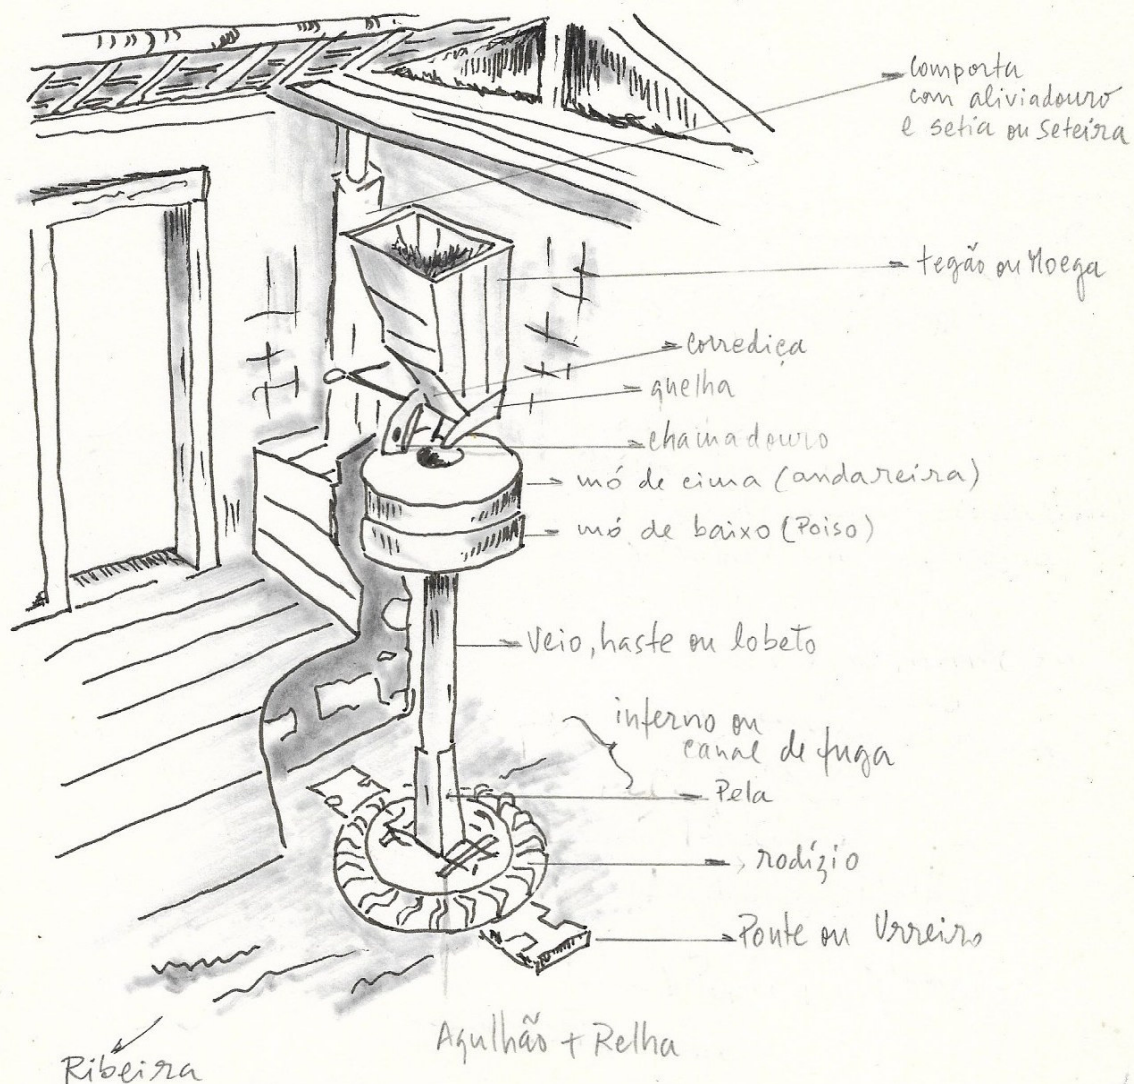 comporta
com aliviadouro
e setia ou seteira
tegão ou Moega
corrediça
quelha
chamadouro
mó de cima (andareira)
mó de baixo (Poiso)
Veio, haste ou lobeto
inferno ou
canal de fuga
Pela
rodízio
Ponte ou Urreiro
Agulhão + Relha
Ribeira